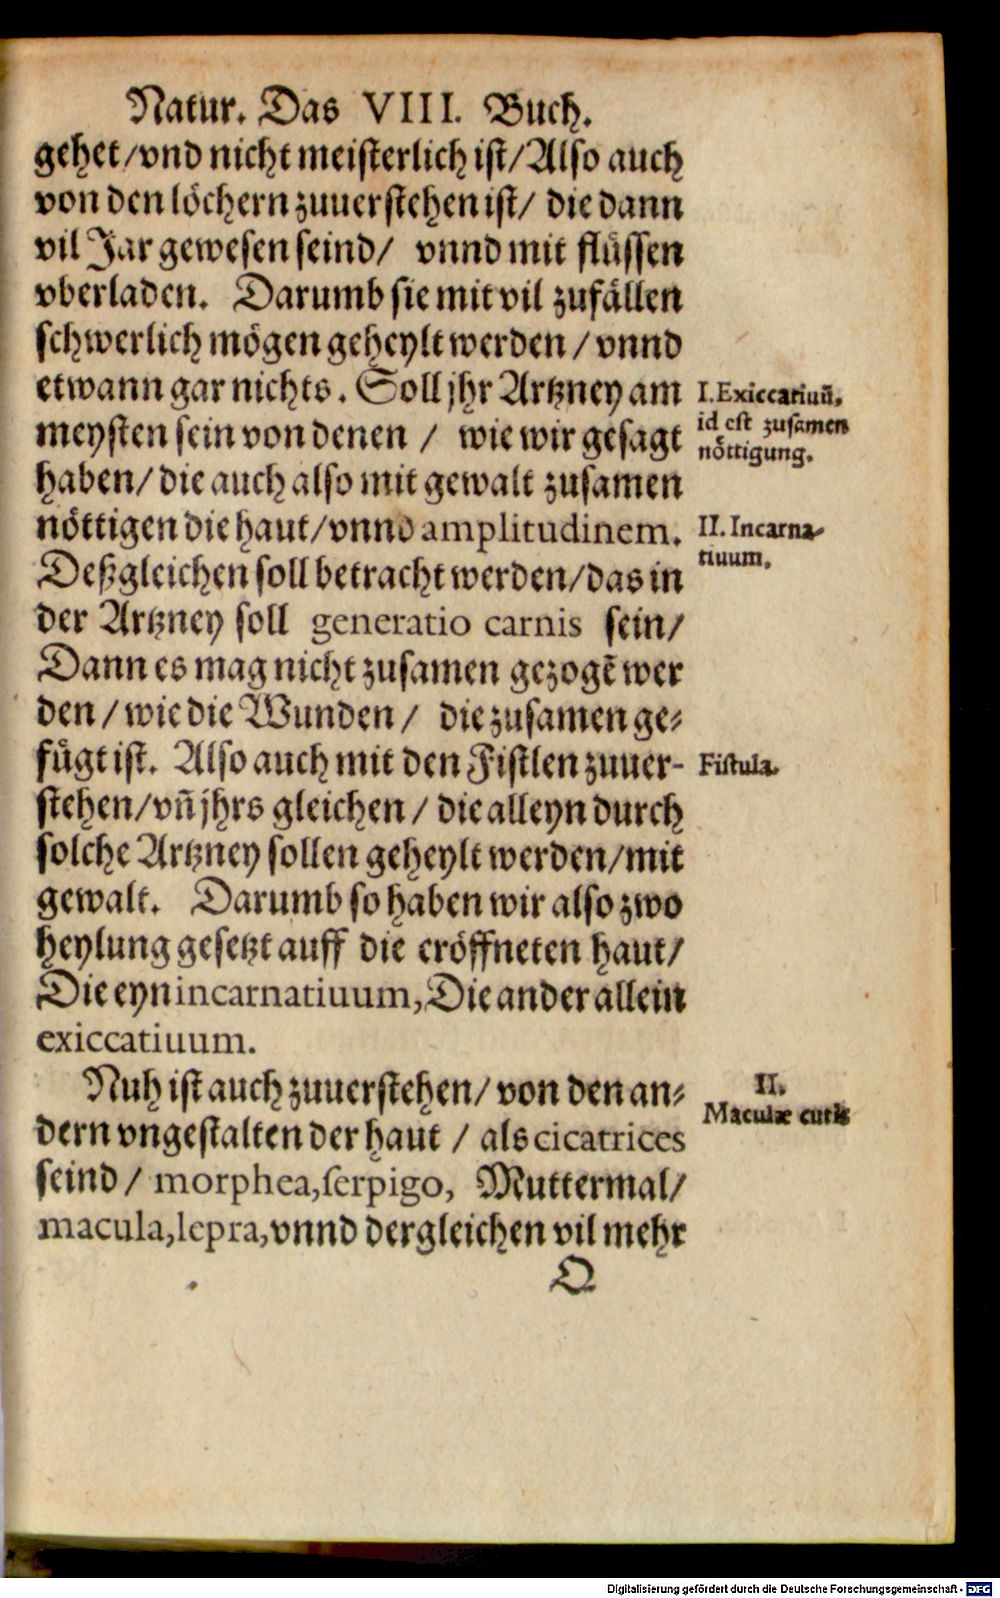 Natur. Das VIII. Buch.
gehet/vnd nicht meisterlich ist/Also auch
von den löchern zuuerstehen ist/ die dann
vil Jar gewesen seind/ vnnd mit flüssen
vberladen. Darumb sie mit vil zufällen
schwerlich mögen geheylt werden / vnnd
etwann gar nichts. Soll jhr Artzney am
meysten sein von denen / wie wir gesagt
haben/ die auch also mit gewalt zusamen
nöttigen die haut/vnnd amplitudinem.
Deßgleichen soll betracht werden/das in
der Artzney soll generatio carnis sein/
Dann es mag nicht zusamen gezogẽ wer
den / wie die Wunden / die zusamen ge⸗
fügt ist. Also auch mit den Fistlen zuuer-
stehen/vñ jhrs gleichen / die alleyn durch
solche Artzney sollen geheylt werden/mit
gewalt. Darumb so haben wir also zwo
heylung gesetzt auff die eröffneten haut/
Die eyn incarnatiuum, Die ander allein
exiccatiuum.
Nuh ist auch zuuerstehen/ von den an⸗
dern vngestalten der haut / als cicatrices
seind / morphea, serpigo, Muttermal/
macula, lepra, vnnd dergleichen vil mehr
O
I. Exiccatiuũ,
id est zusamen
nöttigung.
II. Incarna-
tiuum.
Fistula.
II.
Maculæ cutis
Digitalisierung gefördert durch die Deutsche Forschungsgemeinschaft - DFG